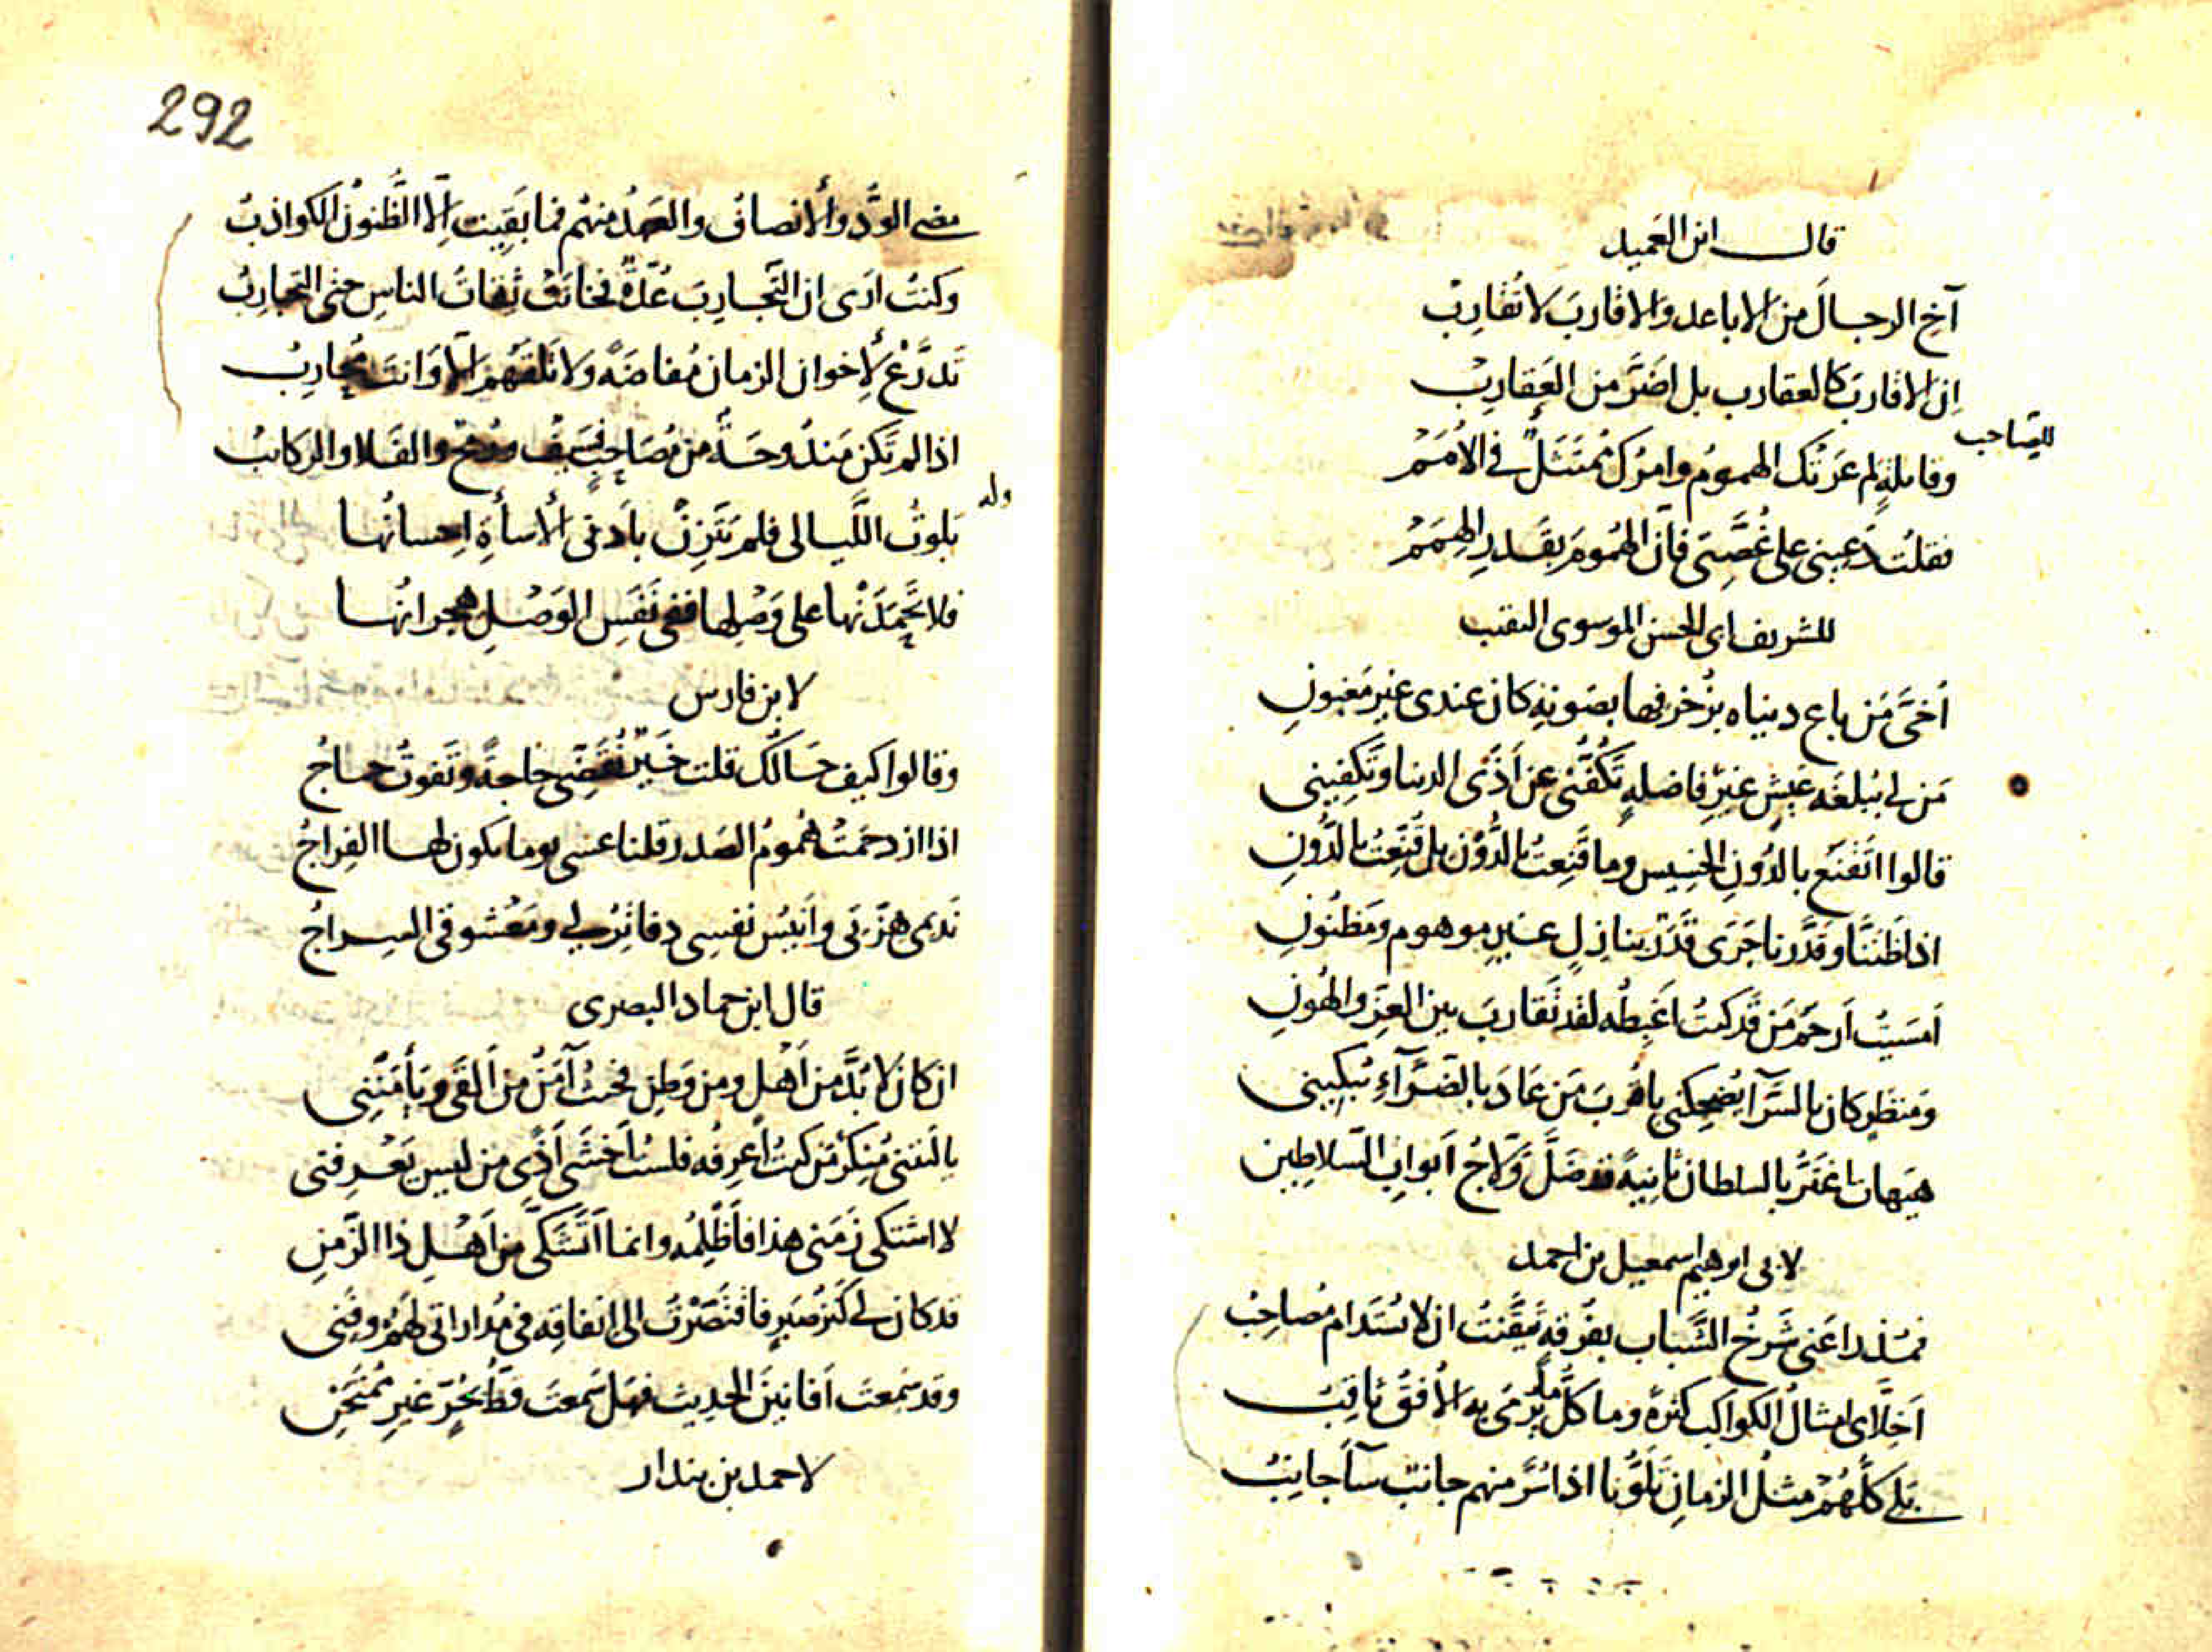 قال ابن العميد
آخِ الرجالَ من الاباعد والاقاربَ لا تُقارِبْ
اِنّ الاقاربَ كالعقارب بل اضَرّ من العَقارِبْ
للصّاحب
وقائلةٍ لم عَرَتْك الهمومُ وامرُك مُمتَثَلٌ في الاُمَمْ
فقلتُ دَعيني على غُصَّتي فانّ الهُمومَ بقَدرِ الهِمَمْ
للشريف ابى الحسن الموسوى النقيب
اَخىَّ مَن باع دنياه بزُخرفها بصَونِهِ كان عندى غيرَ مَغبونِ
مَن لى ببُلغَه عَيشٍ غيرِ فاضلهٍ تَكُفُّنى عن اَذَى الدنيا وتَكفينى
قالوا اتَقنَع بالدُونِ الخسيس وما قَنِعتُ بالدُّوْنِ بل قُنِّعتُ بالدُّونِ
اذا ظَنَنّا وقَدَّرنا جَرَى قَدَرٌ بنازلٍ غيرِ موهومٍ ومَظنُونِ
اَمسَيتُ اَرحَمُ مَن قد كنتُ اَغبِطُه لقد تَقارب بين العِزّ والهُونِ
ومَنظَرٍ كان بالسَرّآ يُضحِكنى يا قُربَ مَن عَادَ بالضَرّآءِ يُبكينى
هيهات اَغتَرُّ بالسلطان ثانيةً قد ضَلَّ وَلّاجُ اَبوابِ السّلاطِين
لابى ابرهيم اسمعيل بن احمد
فمُذ بدا عَنى شَرخُ الشَّباب بفُرقهٍ تَيَقَّنتُ ان لا يُستَدام مُصاحِبُ
اَخِلّاى امثالُ الكواكب كثرةً وما كلُّ ما يُرمَى به الاُفقُ ثاقِبُ
بَلى كلّهُمْ مثلُ الزمانِ تَلَوُّنا اذا سُرَّ منهم جانبٌ سآ جانِبُ
292
مضى الوُدُّ والانصافُ والعَهدُ منهم فما بَقِيَت اِلّا الظُنونُ الكواذِبُ
وكنتُ ارَى ان التّجارِبَ عُدّةٌ فخانَت ثِقاتُ الناسِ حتى التّجارِبُ
تَدَرَّعْ لاِخوان الزمان مُفاضَةً ولا تَلقَهُم الّا وَانتَ مُحارِبُ
اذا لم تكن مَندُوحَةٌ من مُصَاحِبٍ فسَيفٌ ورُمحٌ والفَلا والركائبُ
وله
بَلوتُ اللّيالى فلم يَتَّزِنْ بأدنى الأساءَةِ اِحسانُها
فلا تَحمَدَنْها على وَصلِها ففى نَفَسِ الوَصْلِ هجرانُها
لابن فارس
وقالوا كيف حَالُك قلت خَيرٌ تُقَضّى حاجةٌ وتَفوتُ حاجُ
اذا ازدحَمَتْ هُمومُ الصَدر قلنا عسى يوما يكون لها انفِراجُ
نَديمى هِرّتى واَنيسُ نَفسِى دفاتِرُ لى ومَعشوقى السِراجُ
قال ابن حماد البصرى
ان كان لا بُدَّ من اَهلٍ ومن وَطنٍ فحيثُ آمَنُ من اَلقَى ويَأمَنُنِى
يا ليتنى مُنكِرٌ مَن كنتُ اَعرِفُه فلستُ اَخشَى اَذَى من ليس يَعرِفنى
لا اشتكى زَمَنى هذا فاَظلِمُه وانما اَتَشَكَّى من اَهلِ ذا الزَمنِ
قد كان لى كَنزُ صَبرٍ فافتقَرتُ الى اِنفاقِه فى مُداراتى لَهُم وفَنى
وقد سَمِعتَ اَفانينَ الحديث فهل سَمعتَ قطّ بحُرٍّ غيرِ مُمتَحَنِ
لاحمد بن بندار